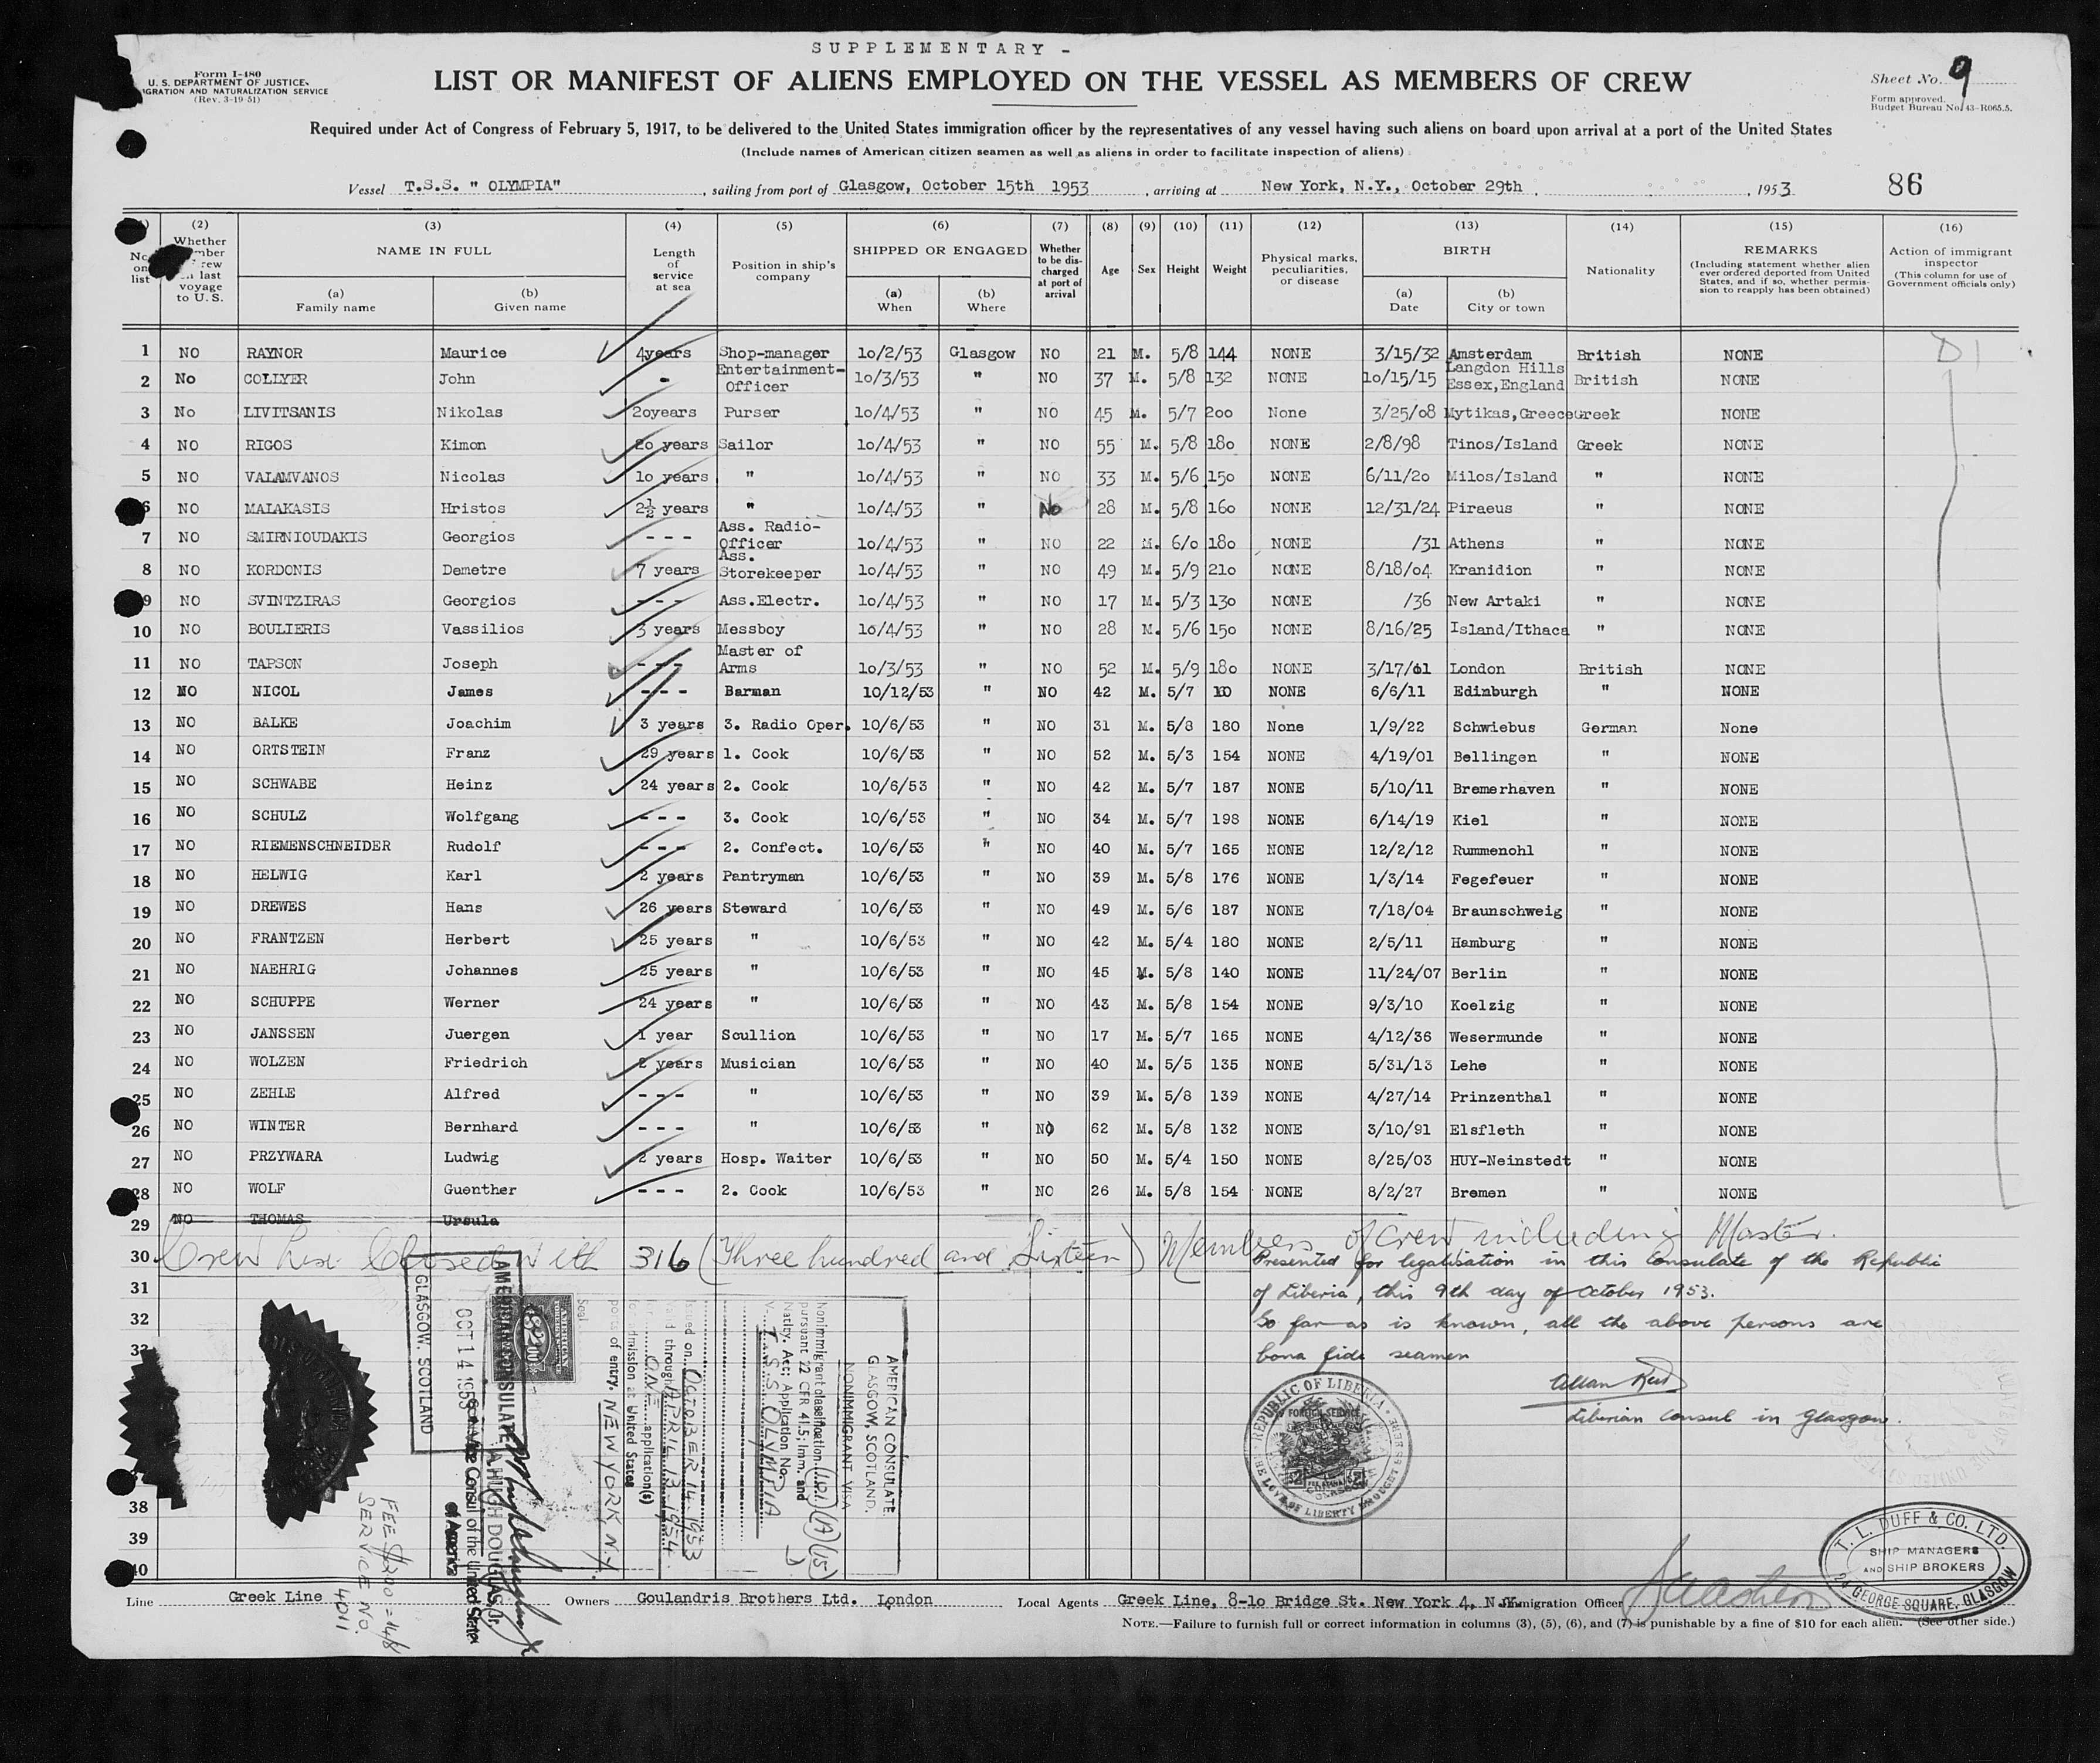 SUPPLEMENTARY -
Form I-480
U. S. DEPARTMENT OF JUSTICE
IGRATION AND NATURALIZATION SERVICE
(Rev. 3-19-51)
LIST OR MANIFEST OF ALIENS EMPLOYED ON THE VESSEL AS MEMBERS OF CREW
Sheet No. 9
Form approved.
Budget Bureau No. 43-R065.5.
Required under Act of Congress of February 5, 1917, to be delivered to the United States immigration officer by the representatives of any vessel having such aliens on board upon arrival at a port of the United States
(Include names of American citizen seamen as well as aliens in order to facilitate inspection of aliens)
Vessel T.S.S. " OLYMPIA" , sailing from port of Glasgow, October 15th 1953 , arriving at New York, N.Y., October 29th , 1953 86
(2) (3) (4) (5) (6) (7) (8) (9) (10) (11) (12) (13) (14) (15) (16)
No. on list
Whether member of crew on last voyage to U. S.
NAME IN FULL (a) Family name (b) Given name
Length of service at sea
Position in ship's company
SHIPPED OR ENGAGED (a) When (b) Where
Whether to be discharged at port of arrival
Age Sex Height Weight
Physical marks, peculiarities, or disease
BIRTH (a) Date (b) City or town
Nationality
REMARKS (Including statement whether alien ever ordered deported from United States, and if so, whether permission to reapply has been obtained)
Action of immigrant inspector (This column for use of Government officials only)
1 NO RAYNOR Maurice 4years Shop-manager 10/2/53 Glasgow NO 21 M. 5/8 144 NONE 3/15/32 Amsterdam British NONE
2 No COLLYER John - Entertainment-Officer 10/3/53 " NO 37 M. 5/8 132 NONE 10/15/15 Langdon Hills Essex,England British NONE
3 No LIVITSANIS Nikolas 20years Purser 10/4/53 " NO 45 M. 5/7 200 None 3/25/08 Mytikas,Greece Greek NONE
4 NO RIGOS Kimon 20 years Sailor 10/4/53 " NO 55 M. 5/8 180 NONE 2/8/98 Tinos/Island Greek NONE
5 NO VALAMVANOS Nicolas 10 years " 10/4/53 " NO 33 M. 5/6 150 NONE 6/11/20 Milos/Island " NONE
6 NO MALAKASIS Hristos 2½ years " 10/4/53 " No 28 M. 5/8 160 NONE 12/31/24 Piraeus " NONE
7 NO SMIRNIOUDAKIS Georgios --- Ass. Radio-Officer 10/4/53 " NO 22 M. 6/0 180 NONE /31 Athens " NONE
8 NO KORDONIS Demetre 7 years Ass. Storekeeper 10/4/53 " NO 49 M. 5/9 210 NONE 8/18/04 Kranidion " NONE
9 NO SVINTZIRAS Georgios --- Ass.Electr. 10/4/53 " NO 17 M. 5/3 130 NONE /36 New Artaki " NONE
10 NO BOULIERIS Vassilios 3 years Messboy 10/4/53 " NO 28 M. 5/6 150 NONE 8/16/25 Island/Ithaca " NONE
11 NO TAPSON Joseph --- Master of Arms 10/3/53 " NO 52 M. 5/9 180 NONE 3/17/01 London British NONE
12 NO NICOL James --- Barman 10/12/53 " NO 42 M. 5/7 NONE 6/6/11 Edinburgh " NONE
13 NO BALKE Joachim 3 years 3. Radio Oper. 10/6/53 " NO 31 M. 5/8 180 None 1/9/22 Schwiebus German None
14 NO ORTSTEIN Franz 29 years 1. Cook 10/6/53 " NO 52 M. 5/3 154 NONE 4/19/01 Bellingen " NONE
15 NO SCHWABE Heinz 24 years 2. Cook 10/6/53 " NO 42 M. 5/7 187 NONE 5/10/11 Bremerhaven " NONE
16 NO SCHULZ Wolfgang --- 3. Cook 10/6/53 " NO 34 M. 5/7 198 NONE 6/14/19 Kiel " NONE
17 NO RIEMENSCHNEIDER Rudolf --- 2. Confect. 10/6/53 " NO 40 M. 5/7 165 NONE 12/2/12 Rummenohl " NONE
18 NO HELWIG Karl 2 years Pantryman 10/6/53 " NO 39 M. 5/8 176 NONE 1/3/14 Fegefeuer " NONE
19 NO DREWES Hans 26 years Steward 10/6/53 " NO 49 M. 5/6 187 NONE 7/18/04 Braunschweig " NONE
20 NO FRANTZEN Herbert 25 years " 10/6/53 " NO 42 M. 5/4 180 NONE 2/5/11 Hamburg " NONE
21 NO NAEHRIG Johannes 25 years " 10/6/53 " NO 45 M. 5/8 140 NONE 11/24/07 Berlin " NONE
22 NO SCHUPPE Werner 24 years " 10/6/53 " NO 43 M. 5/8 154 NONE 9/3/10 Koelzig " NONE
23 NO JANSSEN Juergen 1 year Scullion 10/6/53 " NO 17 M. 5/7 165 NONE 4/12/36 Wesermunde " NONE
24 NO WOLZEN Friedrich 2 years Musician 10/6/53 " NO 40 M. 5/5 135 NONE 5/31/13 Lehe " NONE
25 NO ZEHLE Alfred --- " 10/6/53 " NO 39 M. 5/8 139 NONE 4/27/14 Prinzenthal " NONE
26 NO WINTER Bernhard --- " 10/6/53 " NO 62 M. 5/8 132 NONE 3/10/91 Elsfleth " NONE
27 NO PRZYWARA Ludwig 2 years Hosp. Waiter 10/6/53 " NO 50 M. 5/4 150 NONE 8/25/03 HUY-Neinstedt " NONE
28 NO WOLF Guenther --- 2. Cook 10/6/53 " NO 26 M. 5/8 154 NONE 8/2/27 Bremen " NONE
29 NO THOMAS Ursula
30 Crew List Closed with 316 (Three hundred and Sixteen) Members of crew including Master.
Presented for legalisation in this Consulate of the Republic
31 of Liberia, this 9th day of October 1953.
32 So far as is known, all the above persons are
33 bona fide seamen
Allan Reid
Liberian Consul in Glasgow.
38
39
40
REPUBLIC OF LIBERIA
FOREIGN SERVICE
GLASGOW
THE LOVE OF LIBERTY BROUGHT US HERE
AMERICAN CONSULATE
GLASGOW, SCOTLAND
OCT 14 1953
A. HUGH DOUGLAS, Jr.
Vice Consul of the United States
of America
FEE $2.00 = 14/8
SERVICE NO. 4011
AMERICAN CONSULATE
GLASGOW, SCOTLAND.
NONIMMIGRANT VISA
Nonimmigrant classification (101)(A)(15) D
pursuant 22 CFR 41.5; Imm. and
Natlty. Act; Application No.
V. T.S.S. OLYMPIA
Issued on OCTOBER 14 1953
Valid through APRIL 13 1954
for ONE application(s)
for admission at United States
ports of entry. NEW YORK N.Y.
Seal
T. L. DUFF & CO. LTD.
SHIP MANAGERS
AND SHIP BROKERS
24 GEORGE SQUARE, GLASGOW
Line Greek Line Owners Goulandris Brothers Ltd. London Local Agents Greek Line, 8-10 Bridge St. New York 4, N.Y. Immigration Officer
NOTE.—Failure to furnish full or correct information in columns (3), (5), (6), and (7) is punishable by a fine of $10 for each alien. (See other side.)